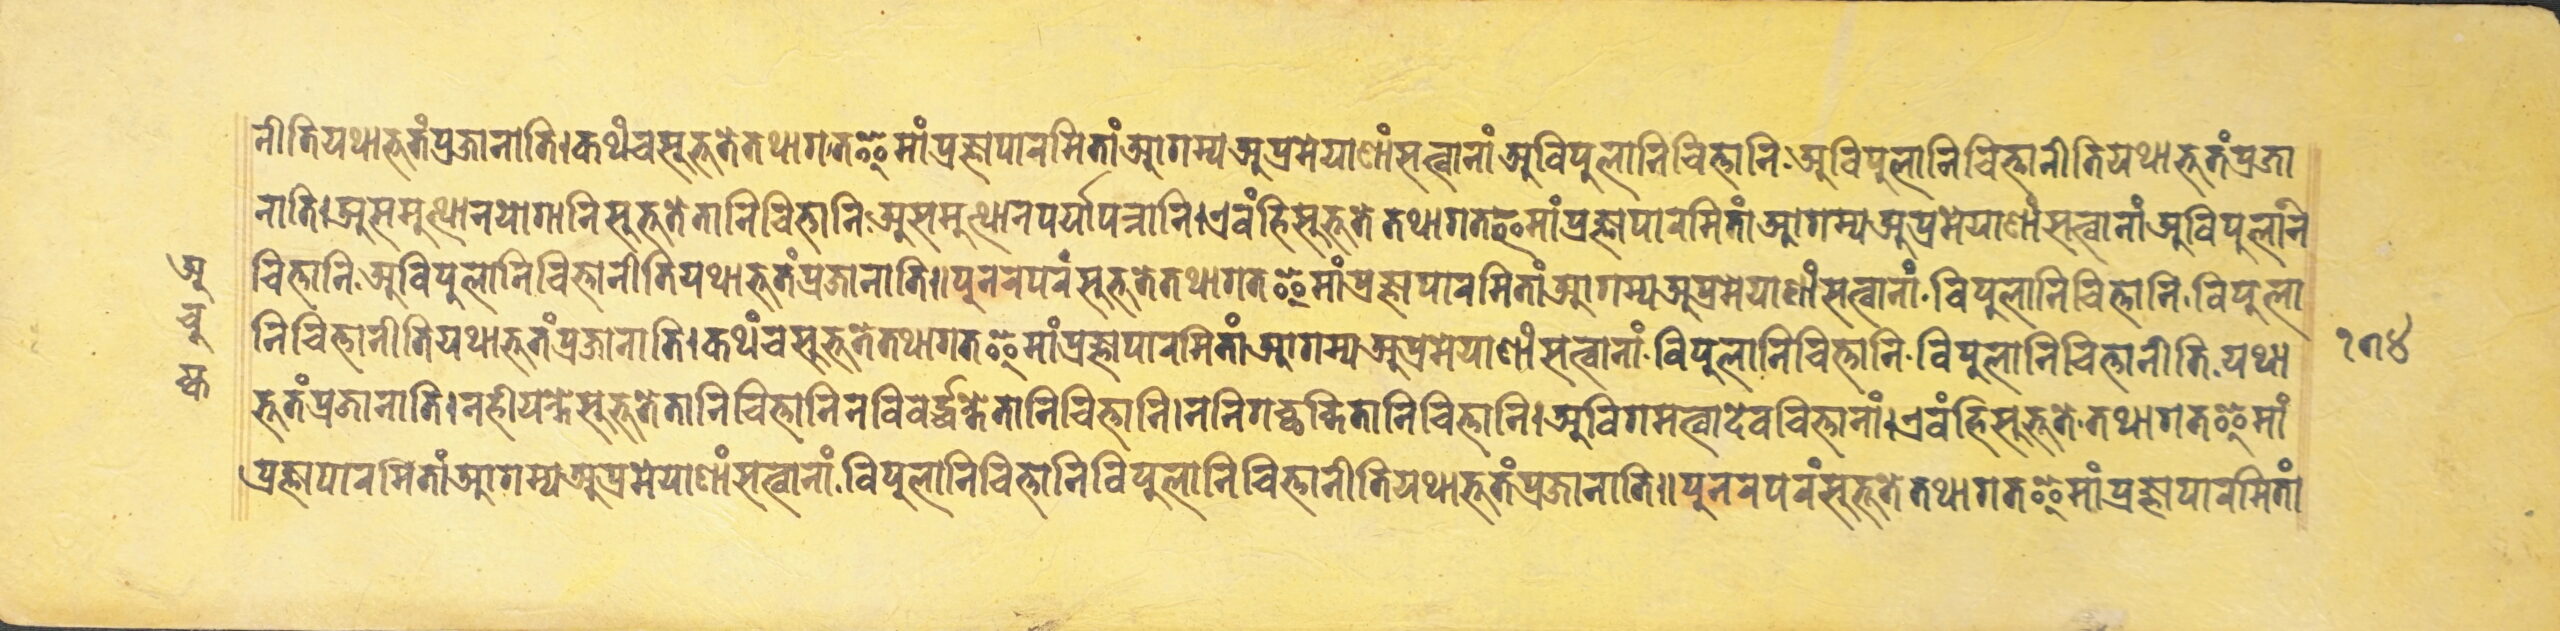 नीतियथाभूतंप्रजानाति।कथंचसुभूतेतथागतइमांप्रज्ञापारमितांआगम्यअप्रमेयाणांसत्वानांअविपुलानिचित्तानि.अविपुलानिचित्तानीतियथाभूतंप्रजा
नाति।असमुत्थानयोगानिसुभूतेतानिचित्तानि.असमुत्थानपर्यापन्नानि।एवंहिसुभूतेतथागतइमांप्रज्ञापारमितांआगम्यअप्रमेयाणांसत्वानांअविपुलानि
चित्तानि.अविपुलानिचित्तानीतियथाभूतंप्रजानाति॥पुनरपरंसुभूतेतथागतइमांप्रज्ञापारमितांआगम्यअप्रमेयाणांसत्वानां.विपुलानिचित्तानि.विपुला
निचित्तानीतियथाभूतंप्रजानाति।कथंचसुभूतेतथागतइमांप्रज्ञापारमितांआगम्यअप्रमेयाणांसत्वानां.विपुलानिचित्तानि.विपुलानिचित्तानीति.यथा
भूतंप्रजानाति।नहीयन्तेसुभूतेतानिचित्तानिनविवर्द्धन्तेतानिचित्तानि।ननिगच्छन्तितानिचित्तानि।अविगमत्वादेवचित्तानां।एवंहिसुभूते.तथागतइमां
प्रज्ञापारमितांआगम्यअप्रमेयाणांसत्वानां.विपुलानिचित्तानिविपुलानिचित्तानीतियथाभूतंप्रजानाति॥पुनरपरंसुभूतेतथागतइमांप्रज्ञापारमितां
१७४